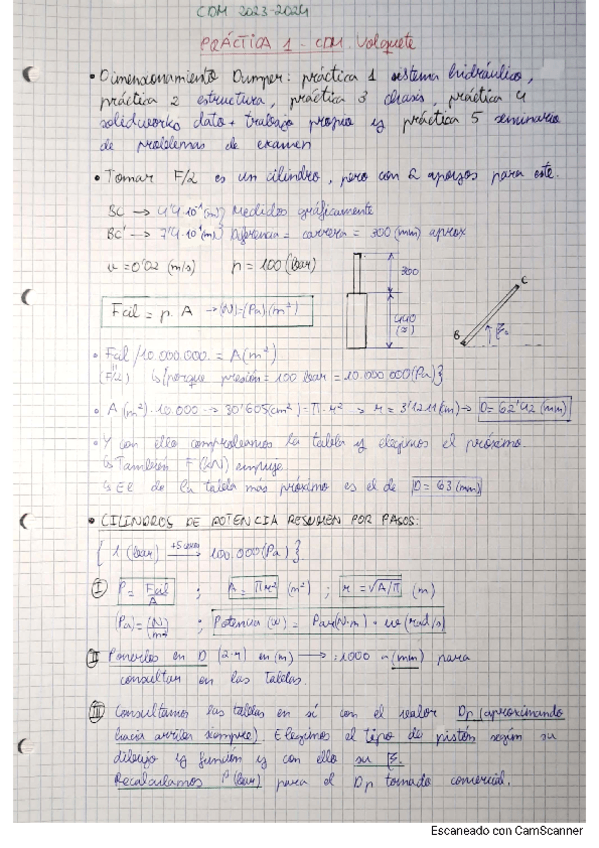 CDM 2023-2024
PRÁCTICA 1 - CDM. Volquete
• Dimensionamiento Dumper: práctica 1 sistema hidráulico,
práctica 2 estructura, práctica 3 chasis, práctica 4
solidworks dato + trabajo propio y práctica 5 seminario
de problemas de examen
• Tomar F/2 es un cilindro, pero con 2 apoyos para este.
BC → 4'4·10⁻¹(m) Medidos gráficamente
BC' → 7'4·10⁻¹(m) Diferencia = carrera = 300 (mm) aprox
v = 0'02 (m/s) p = 100 (bar)
300
440
(≈)
B
C
Fcil = p. A → (N)=(Pa)(m²)
• Fcil/10.000.000 = A(m²)
(F/2) ↳{porque presión = 100 bar = 10.000.000(Pa)}
• A (m²)·10.000 → 30'605(cm²) = π·r² → r = 3'1211(cm) → D=62'42 (mm)
• Y con ello comprobamos la tabla y elegimos el próximo.
↳ También F(kN) empuje
↳ El de la tabla más próximo es el de D = 63 (mm)
• CILINDROS DE POTENCIA RESUMEN POR PASOS:
{ 1 (bar) +5 ceros → 100.000 (Pa) }
I P = Fcil/A ; A = πr² (m²) ; r = √A/π (m)
(Pa) = (N)/(m²) ; Potencia (W) = Par(N·m) · ω(rad/s)
II Ponerlos en D (2·r) en (m) → ·1000 → (mm) para
consultar en las tablas.
III Consultamos las tablas en sí con el valor Dp (aproximando
hacia arriba siempre). Elegimos el tipo de pistón según su
dibujo y función y con ello su F.
Recalculamos P(bar) para el Dp tomado comercial.
Escaneado con CamScanner